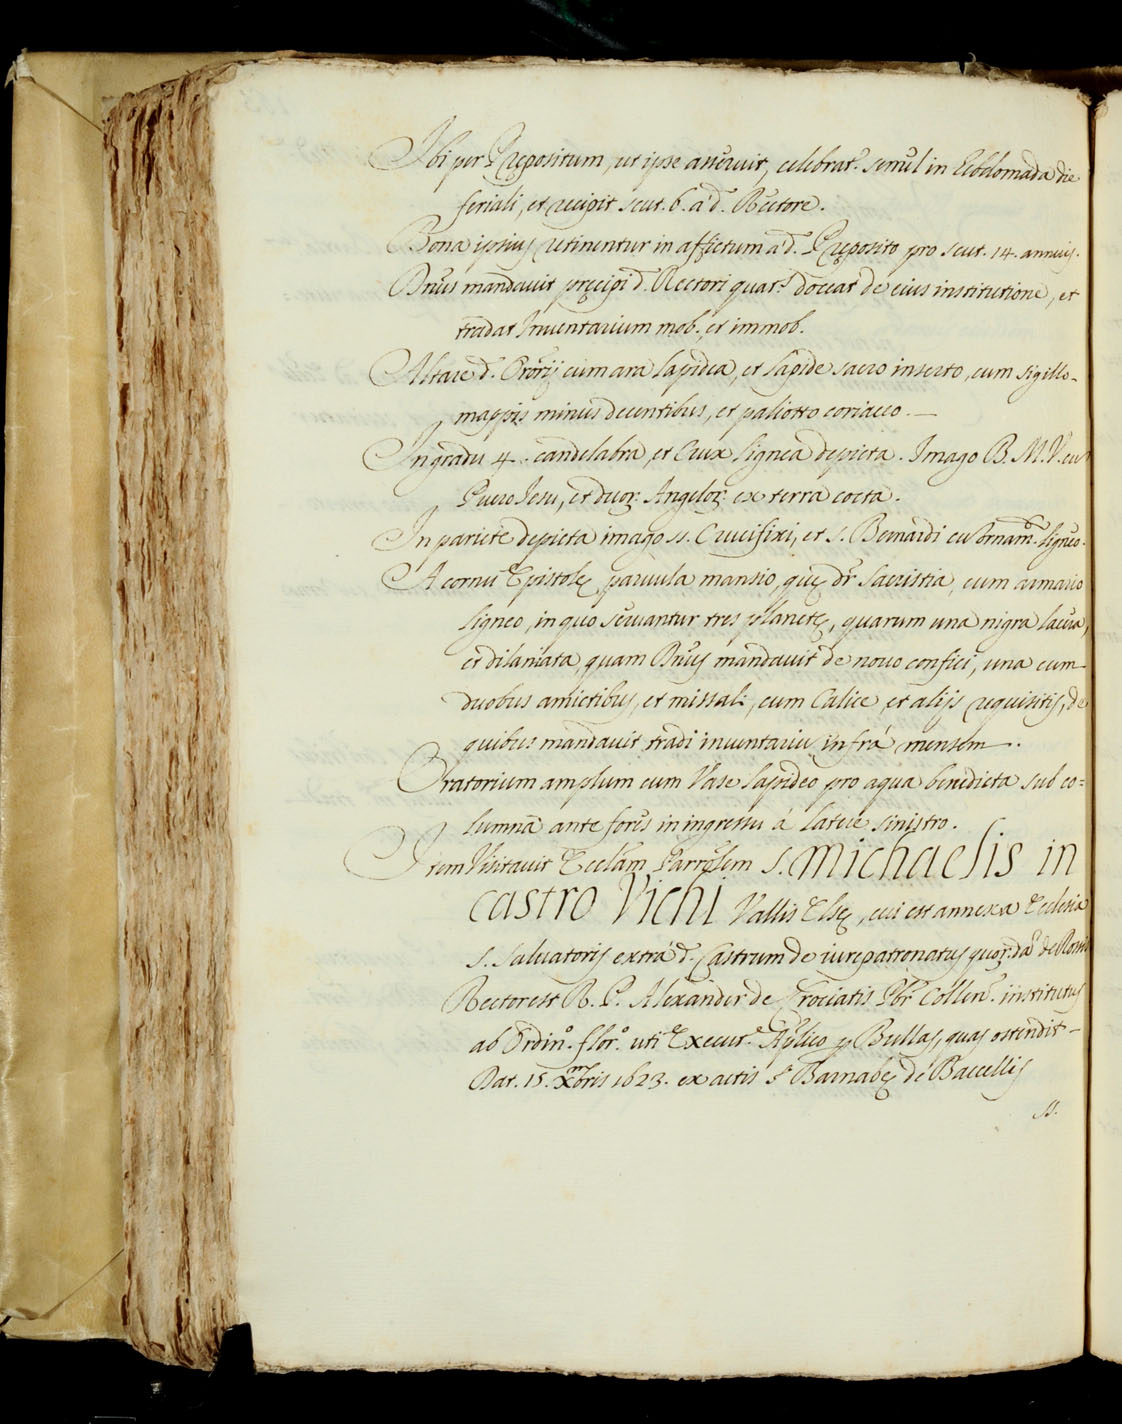 Ibi per Præpositum, ut ipse asseruit, celebrat.r semel in Ebdomada die
feriali, et recipit scut. 6. a d. Rectore.
Bona ipsius retinentur in affictum a d. Præposito pro scut. 14. annuis.
Dnus mandavit præcipi d. Rectori quat.s doceat de eius institutione, et
tradat Inventarium mob. et immob.
Altare d. Oratorij cum ara lapidea, et lapide sacro inserto, cum sigillo
mappis minus decentibus, et paliotto coriaceo.—
In gradu 4. candelabra, et Crux lignea depicta. Imago B. M. V. cu
Puero Iesu, et duor. Angelor. ex terra cocta.
In pariete depicta imago SS. Crucifixi, et S. Bernardi cu ornam.to ligneo.
A cornu Epistolæ parvula mansio, quæ dr Sacristia, cum armario
ligneo, in quo servantur tres planetæ, quarum una nigra lacera,
et dilaniata, quam Dnus mandavit de novo confici, una cum
duobus amictibus, et missali, cum Calice, et alijs requisitis, de
quibus mandavit tradi inventariu infrà mensem.
Oratorium amplum cum Vase lapideo pro aqua benedicta sub co=
lumna ante fores in ingressu à latere sinistro.
Item Visitavit Ecclam Parrolem S. Michaelis in
castro Vichi Vallis Elsæ, cui est annexa Ecclesia
S. Salvatoris extrà d. Castrum de iurepatronatus quor.dā de
Rector est R. P. Alexander de Crociatis Pbr Collen. institutus
ab Ordin.o flor.o uti Execut.e Aplico p Bullas, quas ostendit—
Dat. 15. Xmbris 1623. ex actis Barnabæ de Baccellis
SS.